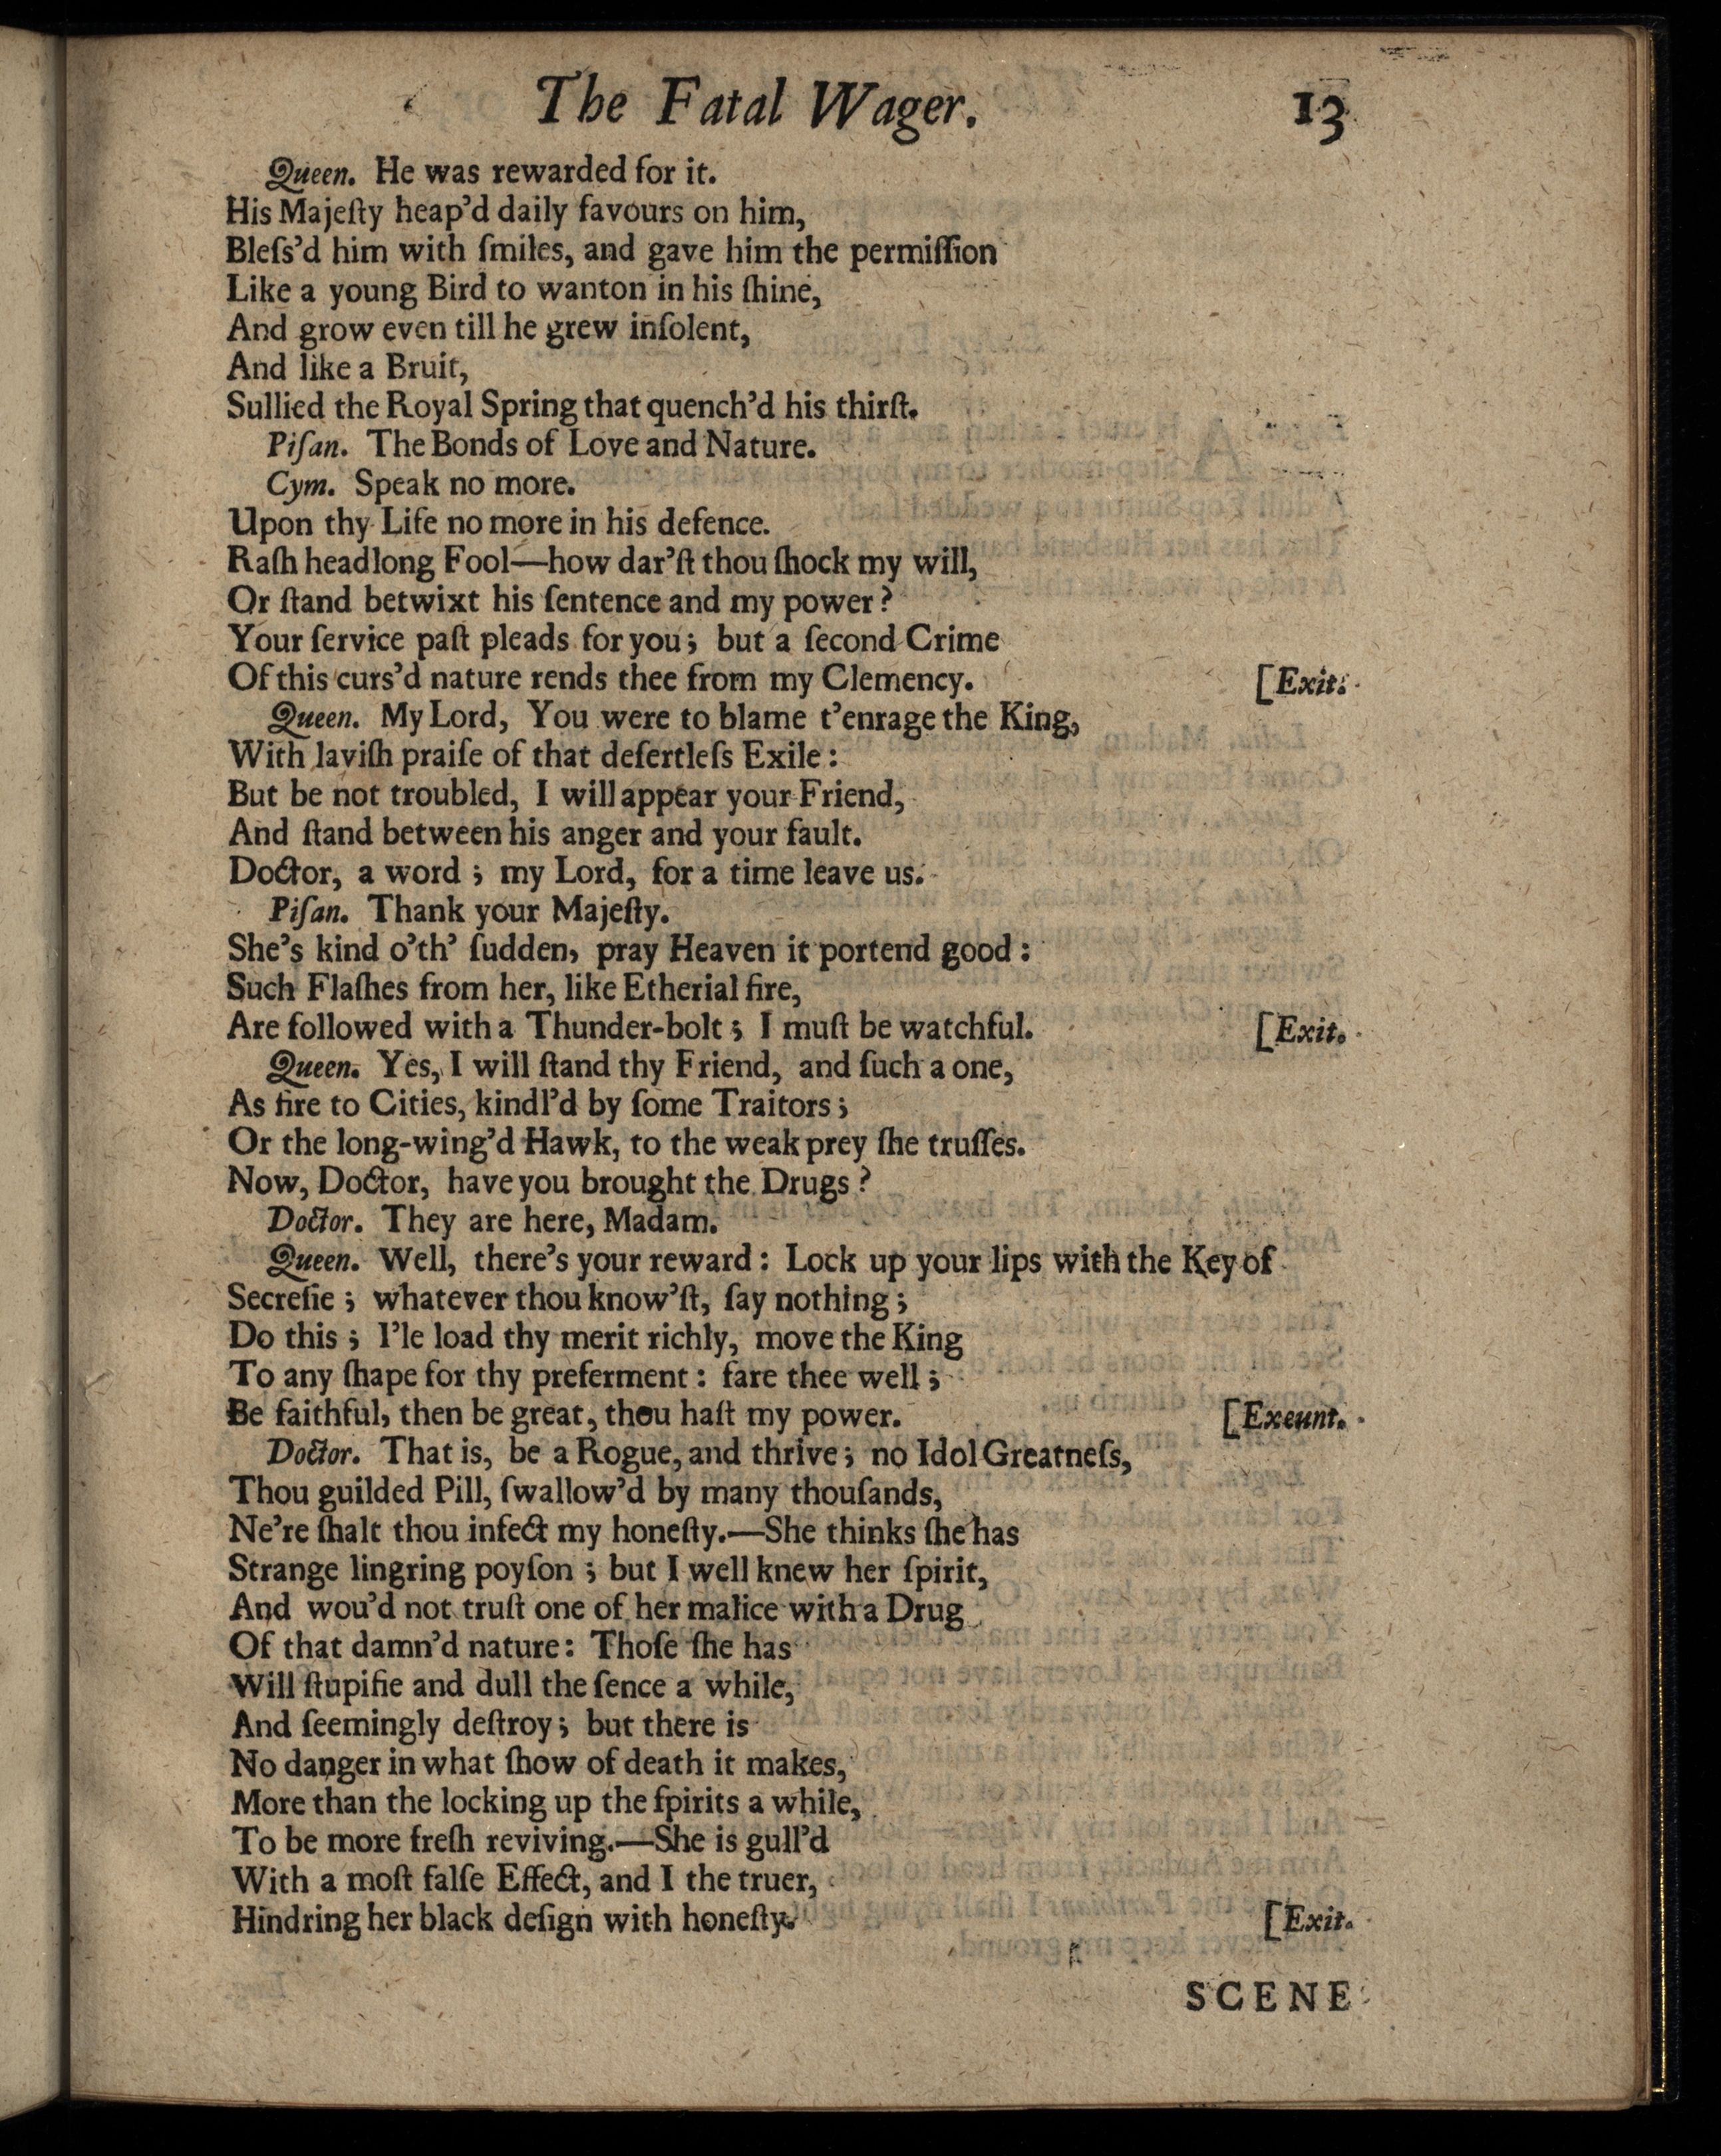 The Fatal Wager. 13
Queen. He was rewarded for it.
His Majeſty heap'd daily favours on him,
Bleſs'd him with ſmiles, and gave him the permiſſion
Like a young Bird to wanton in his ſhine,
And grow even till he grew inſolent,
And like a Bruit,
Sullied the Royal Spring that quench'd his thirſt.
Piſan. The Bonds of Love and Nature.
Cym. Speak no more.
Upon thy Life no more in his defence.
Raſh headlong Fool—how dar'ſt thou ſhock my will,
Or ſtand betwixt his ſentence and my power?
Your ſervice paſt pleads for you; but a ſecond Crime
Of this curs'd nature rends thee from my Clemency. [Exit.
Queen. My Lord, You were to blame t'enrage the King,
With laviſh praiſe of that deſertleſs Exile:
But be not troubled, I will appear your Friend,
And ſtand between his anger and your fault.
Doctor, a word; my Lord, for a time leave us.
Piſan. Thank your Majeſty.
She's kind o'th' ſudden, pray Heaven it portend good:
Such Flaſhes from her, like Etherial fire,
Are followed with a Thunder-bolt; I muſt be watchful. [Exit.
Queen. Yes, I will ſtand thy Friend, and ſuch a one,
As fire to Cities, kindl'd by ſome Traitors;
Or the long-wing'd Hawk, to the weak prey ſhe truſſes.
Now, Doctor, have you brought the Drugs?
Doctor. They are here, Madam.
Queen. Well, there's your reward: Lock up your lips with the Key of
Secreſie; whatever thou know'ſt, ſay nothing;
Do this; I'le load thy merit richly, move the King
To any ſhape for thy preferment: fare thee well;
Be faithful, then be great, thou haſt my power. [Exeunt.
Doctor. That is, be a Rogue, and thrive; no Idol Greatneſs,
Thou guilded Pill, ſwallow'd by many thouſands,
Ne're ſhalt thou infect my honeſty.—She thinks ſhe has
Strange lingring poyſon; but I well knew her ſpirit,
And wou'd not truſt one of her malice with a Drug
Of that damn'd nature: Thoſe ſhe has
Will ſtupifie and dull the ſence a while,
And ſeemingly deſtroy; but there is
No danger in what ſhow of death it makes,
More than the locking up the ſpirits a while,
To be more freſh reviving.—She is gull'd
With a moſt falſe Effect, and I the truer,
Hindring her black deſign with honeſty. [Exit.
SCENE